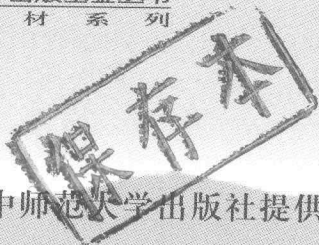 材系列
保存本
中师范大学出版社提供